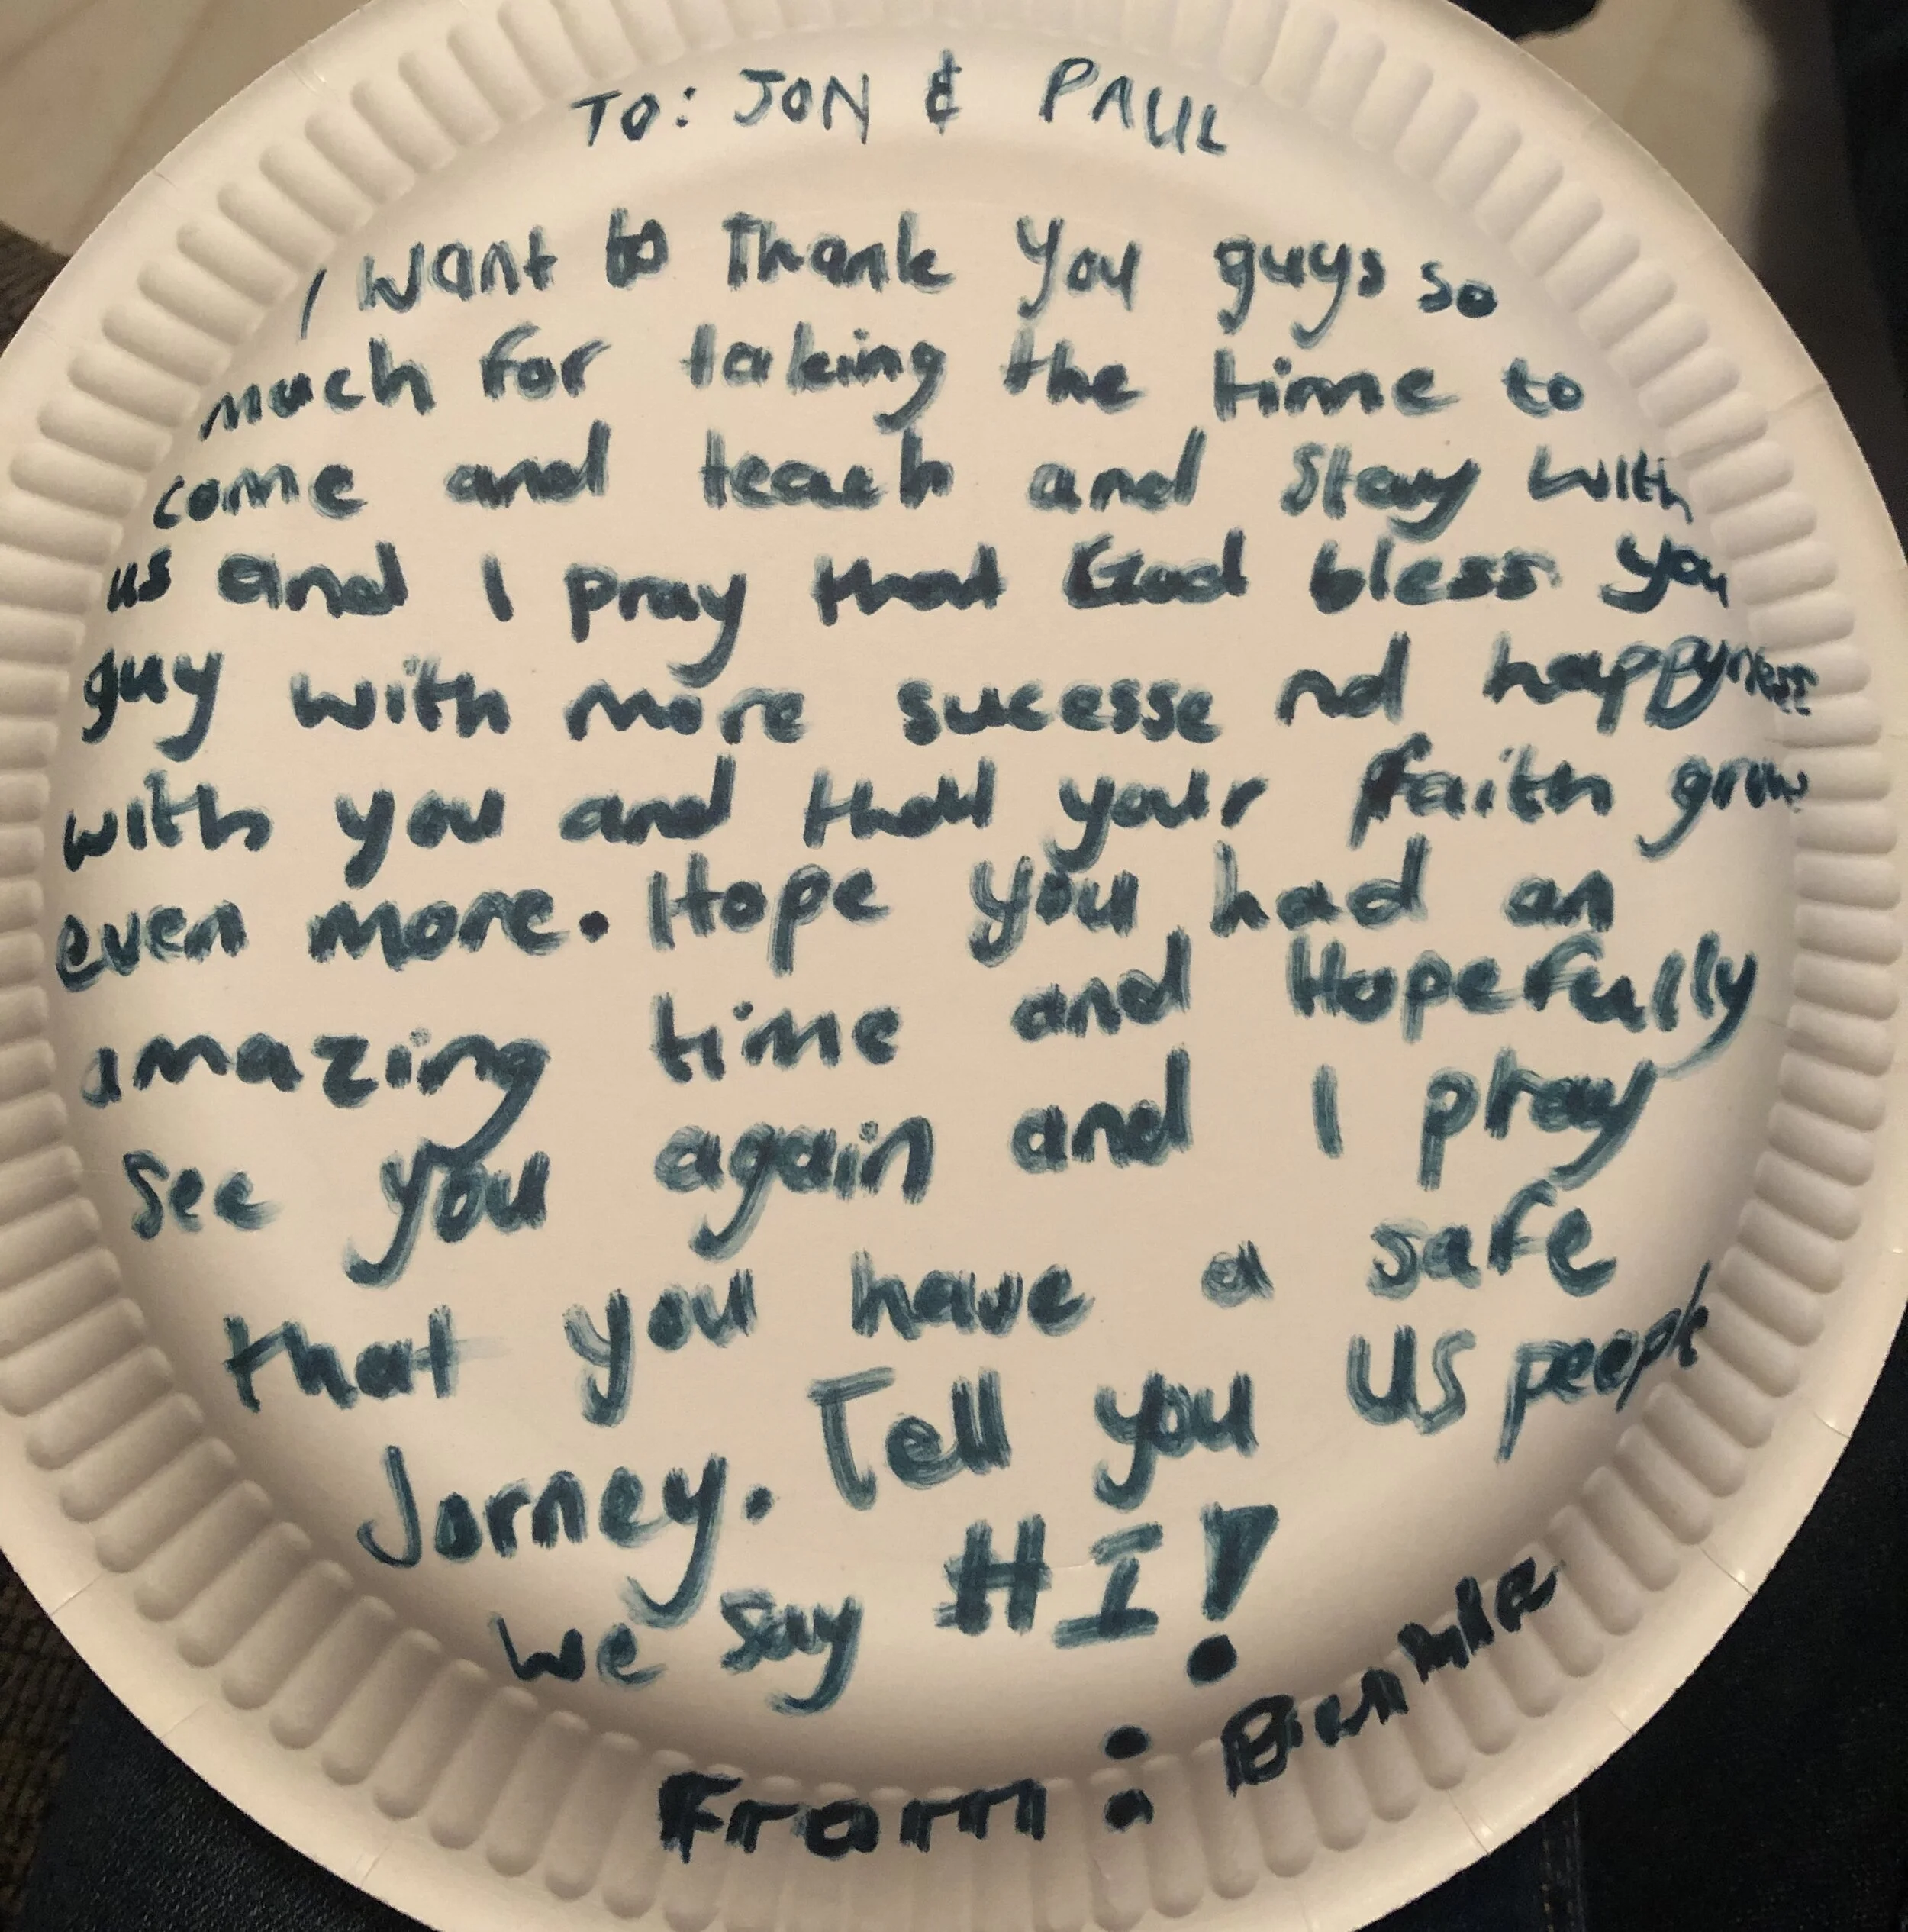 TO: JON & PAUL
I want to Thank you guys so
much for taking the time to
come and teach and Stay with
us and I pray that God bless you
guy with more sucesse nd happyness
with you and that your faith grow
even more. Hope you had an
amazing time and Hopefully
see you again and I pray
that you have a safe
Jorney. Tell you US peeple
we say HI!
From: